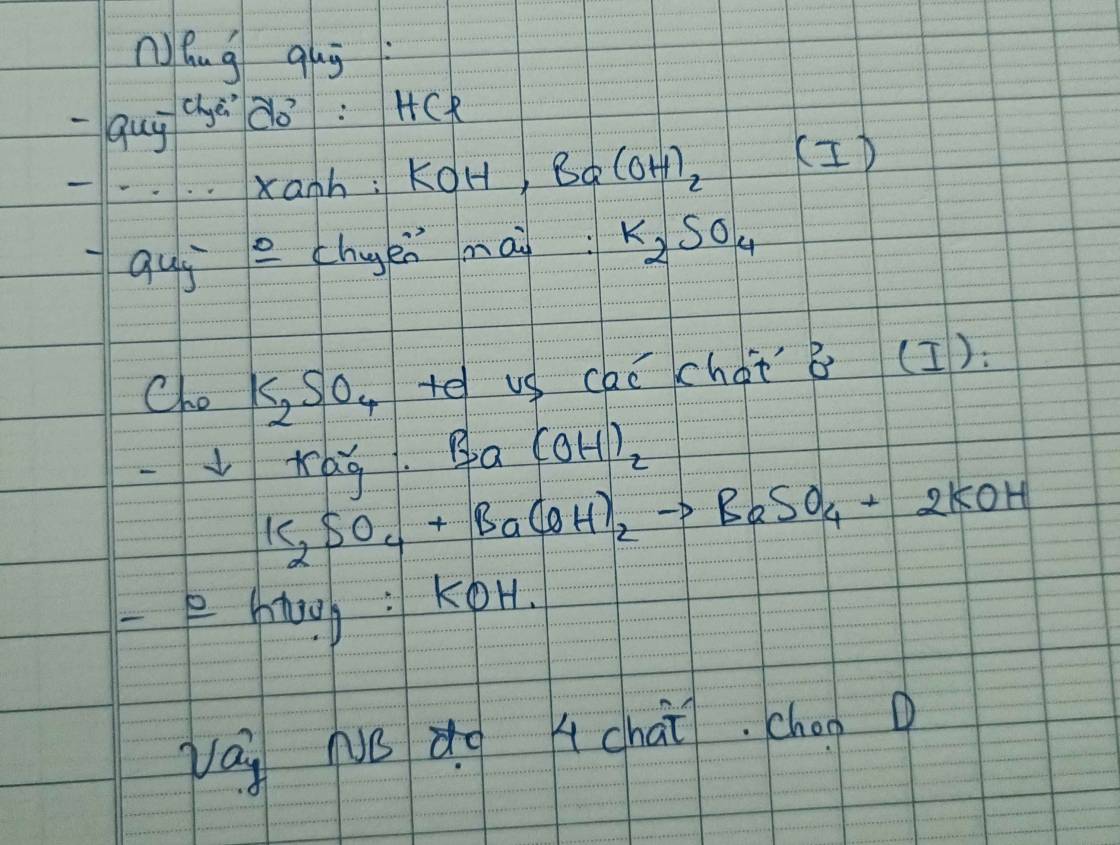 Nhúg quỳ :
- quỳ chyển đỏ : HCl
- ..... xanh : KOH, Ba(OH)₂ (I)
- quỳ o chuyển màu : K₂SO₄
Cho K₂SO₄ td vs các chất ở (I):
- ↓ trắg : Ba(OH)₂
K₂SO₄ + Ba(OH)₂ → BaSO₄ + 2KOH
- o htượg : KOH.
Vậy NB đc 4 chất . chọn D